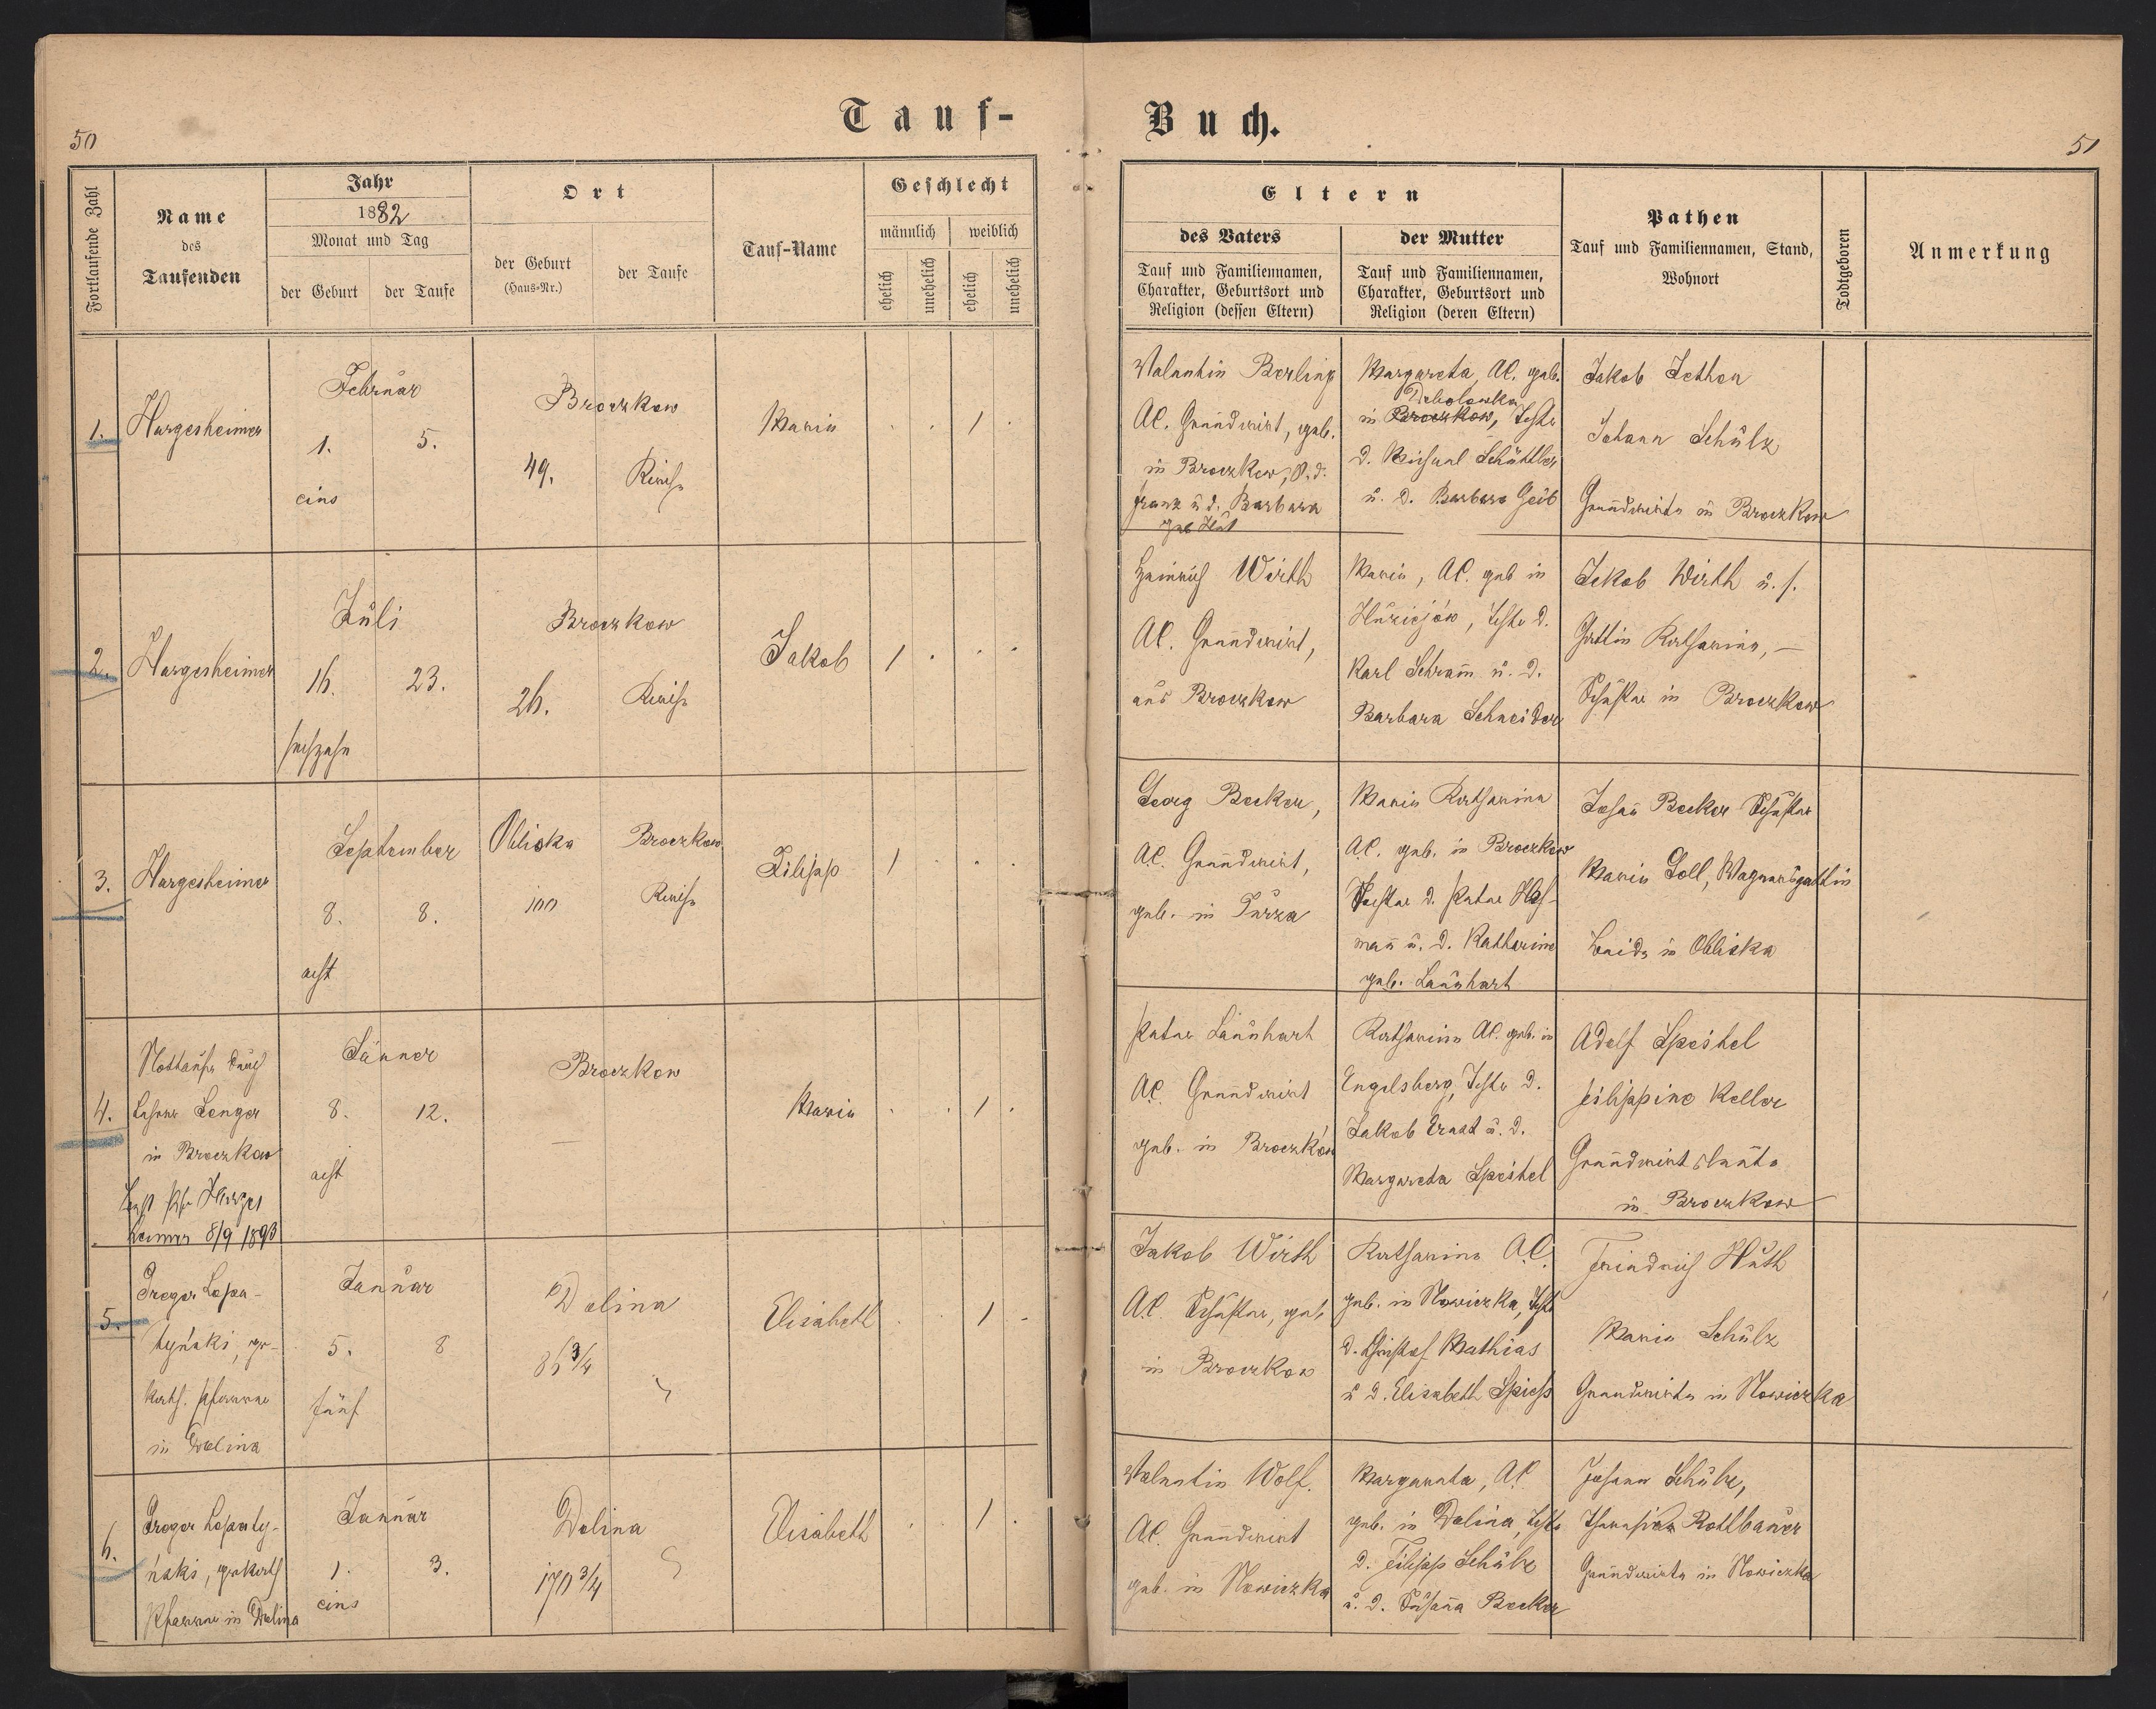 50
Tauf-
Buch.
51
Fortlaufende Zahl
Name
des
Taufenden
Jahr
1882
Monat und Tag
der Geburt
der Taufe
Ort
der Geburt
(Haus-Nr.)
der Taufe
Tauf-Name
Geschlecht
männlich
weiblich
ehelich
unehelich
ehelich
unehelich
Eltern
des Vaters
Tauf und Familiennamen,
Charakter, Geburtsort und
Religion (dessen Eltern)
der Mutter
Tauf und Familiennamen,
Charakter, Geburtsort und
Religion (deren Eltern)
Pathen
Tauf und Familiennamen, Stand,
Wohnort
Todtgeboren
Anmerkung
1.
Hargesheimer
Februar
1.
5.
eins
Broczkow
49.
Maria
1
Valentin Berling
AC. Grundwirt, geb.
in Broczkow, S. d.
Franz u. d. Barbara
geb.
Margareta, AC. geb.
Debolowka
in Broczkow, Tochter
d. Michael Schüttler
u. d. Barbara Geib
Jakob
Johann Schülz
Grundwirte in Broczkow
2.
Hargesheimer
Juli
16.
23.
sechzehn
Broczkow
26.
Jakob
1
Heinrich Wirth
AC. Grundwirt,
aus Broczkow
Maria, AC. geb in
Tochter d.
Karl Schram̄ u. d.
Barbara Schneider
Jakob Wirth u. s.
Gattin Katharina, —
Schuster in Broczkow
3.
Hargesheimer
September
8.
8.
acht
Obliska
Broczkow
100
Filipp
1
Georg Becker,
AC. Grundwirt,
geb. in Turza
Maria Katharina
AC. geb. in Broczkow
Tochter d. Peter Hof-
man̄ u. d. Katharina
geb. Launhart
Johan̄ Becker Schuster
Maria Soll, Wagnersgattin
Beide in Obliska
4.
Nottaufe durch
Lehrer Lenger
in Broczkow
8/9 1893
Jänner
8.
12.
acht
Broczkow
—
Maria
1
Peter Launhart
AC. Grundwirt
geb. in Broczków
Katharina AC. geb. in
Engelsberg, Tochter d.
Jakob Ernst u. d.
Margareta Speichel
Adolf Speichel
Filippine Keller
Grundwirtsleute
in Broczkow
5.
Greger Lopa-
tyński, gr-
kath. Pfarrer
in Dolina
Januar
5.
8
fünf
Dolina
86 3/4
Elisabeth
1
Jakob Wirth
AC. Schuster, geb.
in Broczkow
Katharina AC.
geb. in Nowiczka, Tochter
d. Christof Mathias
u. d. Elisabeth Spiess
Friedrich Huth
Maria Schülz
Grundwirte in Nowiczka
6.
Greger Lopaty-
ński, gr.kath
Pfarrer in Dolina
Januar
1.
3.
eins
Dolina
170 3/4
Elisabeth
1
Valentin Wolf.
AC. Grundwirt
geb. in Nowiczka
Margareta, AC.
geb. in Dolina, Tochter
d. Filipp Schülz
u. d. Susan̄a Becker
Johann Schülz,
Rothbauer
Grundwirte in Nowiczka